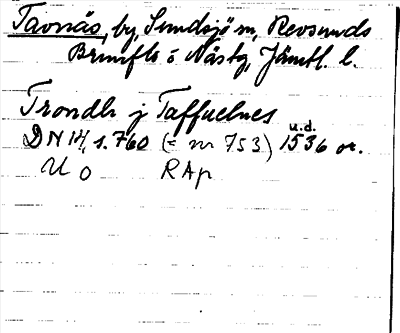 Tavnäs, by, Sundsjö sn, Revsunds
Brunflo o Näs tg, Jämtl. l.
Trondh j Taffuelnes
u.d.
DN 14, s. 760 (= nr 753) 1536 or.
U o RAp